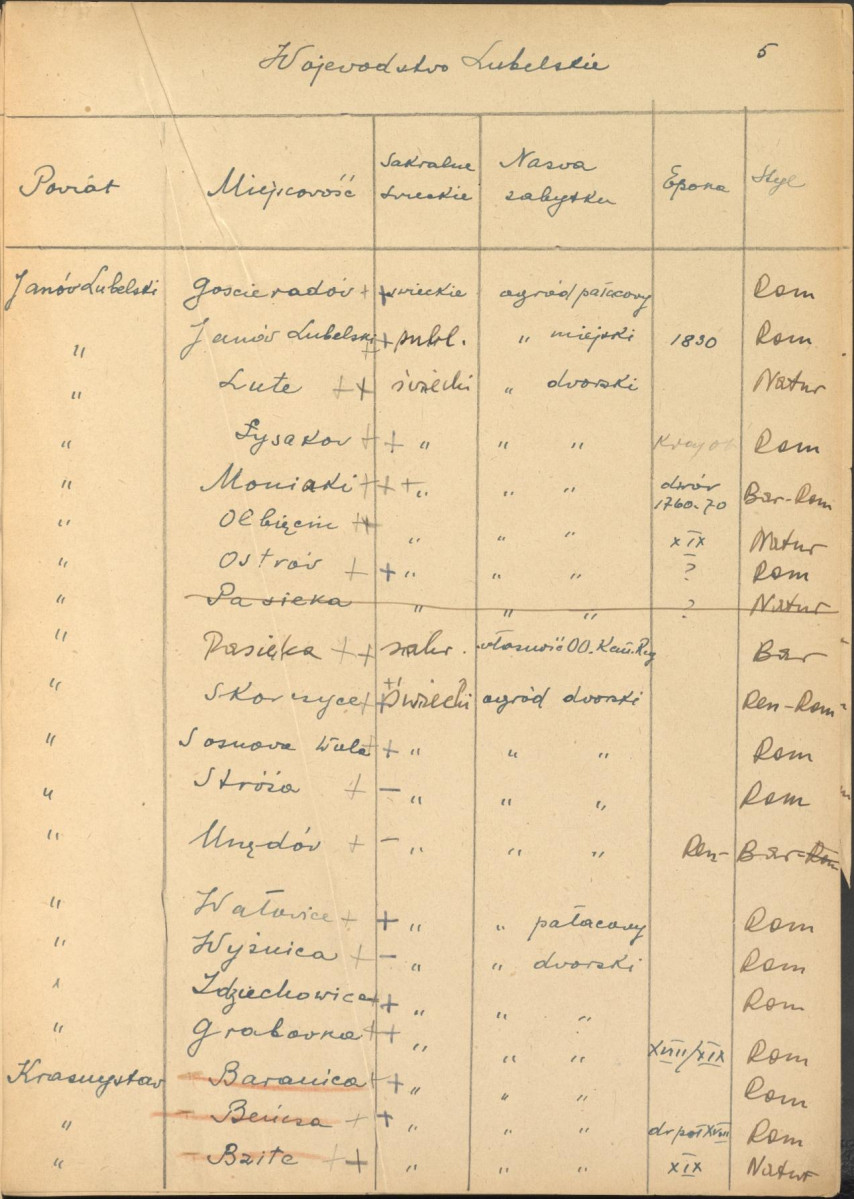 Województwo Lubelskie 5
Powiát Miejscowość Sakralne świeckie Nazwa zabytku Epoka Styl
Janów Lubelski Gościeradów + + świeckie ogród pałacowy Rom
" Janów Lubelski + + publ. " miejski 1830 Rom
" Lute + + świecki " dworski Natur
" Łysaków + + " " " Rom
" Moniaki + + + " " " dwór 1760-70 Bar-Rom
" Olbięcin + + " " " XIX Natur
" Ostrów + + " " " ? Rom
" Pasieka " " " ? Natur
" Pasieka + + sakr. własność OO. Kan. Reg Bar
" Skorczyce + + świecki ogród dworski Ren-Rom
" Sosnowa Wola + + " " " Rom
" Stróża + - " " " Rom
" Urzędów + - " " " Ren- Bar-Rom
" Wałowice + + " " pałacowy Rom
" Wyżnica + - " " dworski Rom
" Zdziechowice + + " " " Rom
" Grabowka + + " " " XVIII/XIX Rom
Krasnystaw - Baranica + + " " " Rom
" - Bończa + + " " " dr poł XVIII Rom
" - Bzite + + " " " XIX Natur